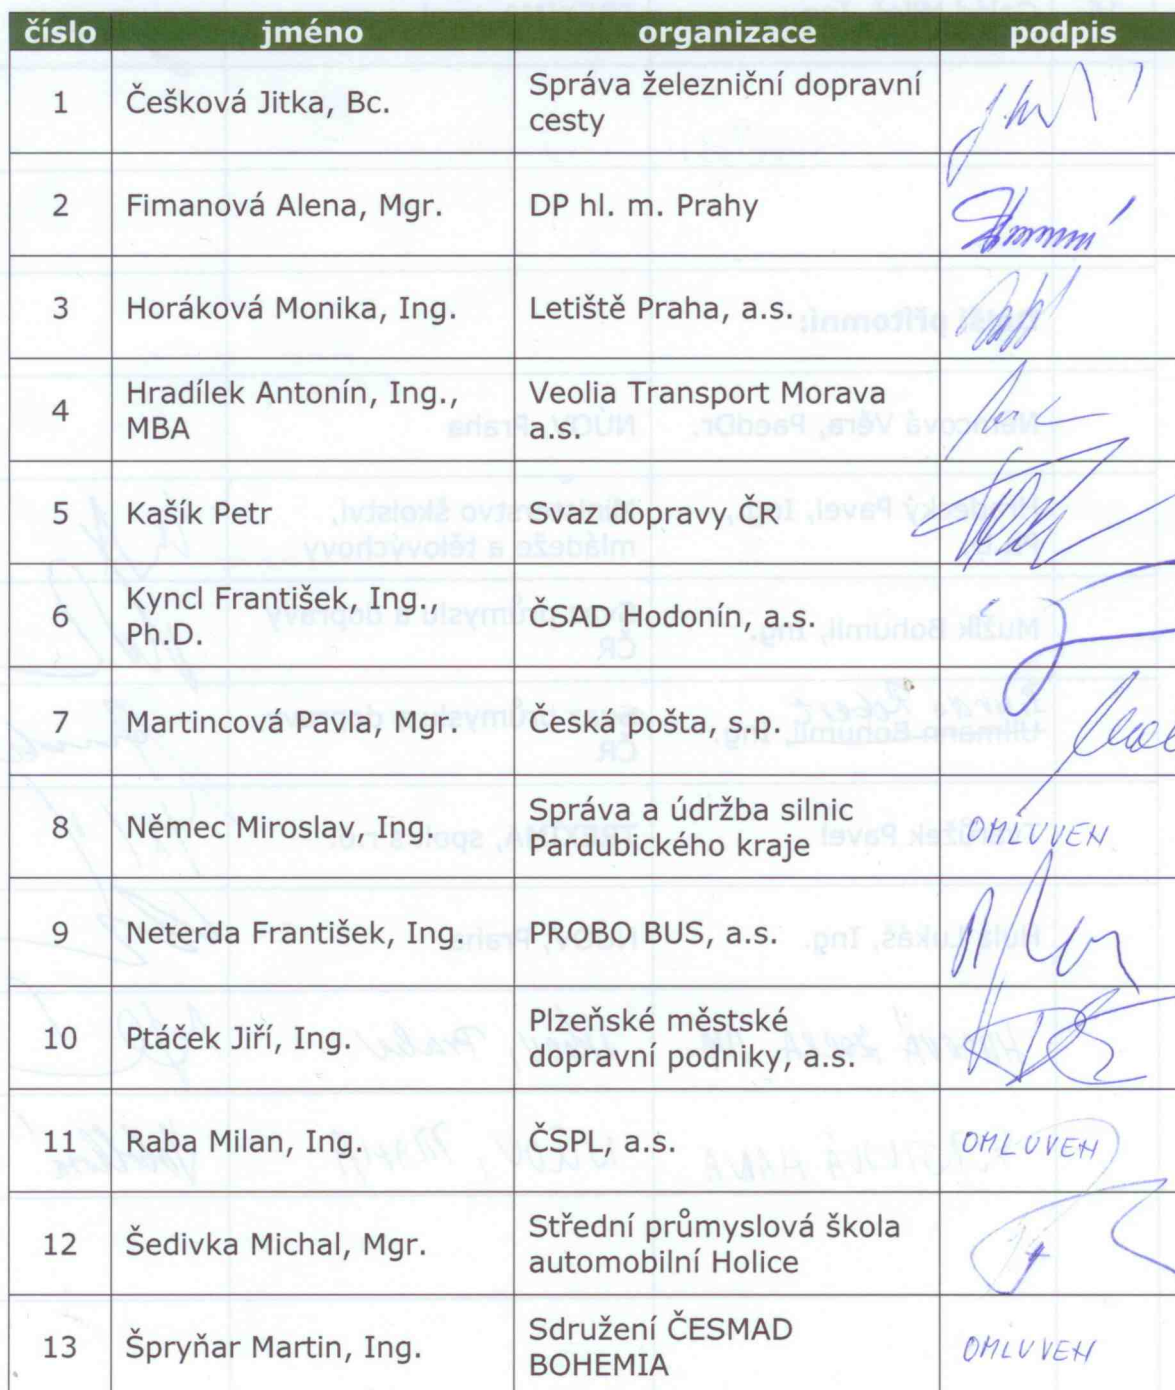 číslo jméno organizace podpis
1 Češková Jitka, Bc. Správa železniční dopravní
cesty
2 Fimanová Alena, Mgr. DP hl. m. Prahy
3 Horáková Monika, Ing. Letiště Praha, a.s.
4 Hradílek Antonín, Ing.,
MBA Veolia Transport Morava
a.s.
5 Kašík Petr Svaz dopravy ČR
6 Kyncl František, Ing.,
Ph.D. ČSAD Hodonín, a.s.
7 Martincová Pavla, Mgr. Česká pošta, s.p.
8 Němec Miroslav, Ing. Správa a údržba silnic
Pardubického kraje OMLUVEN
9 Neterda František, Ing. PROBO BUS, a.s.
10 Ptáček Jiří, Ing. Plzeňské městské
dopravní podniky, a.s.
11 Raba Milan, Ing. ČSPL, a.s. OMLUVEN
12 Šedivka Michal, Mgr. Střední průmyslová škola
automobilní Holice
13 Špryňar Martin, Ing. Sdružení ČESMAD
BOHEMIA OMLUVEN